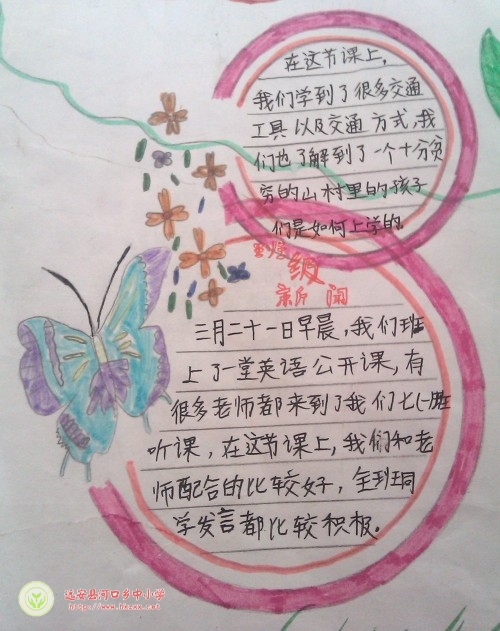 在这节课上，
我们学到了很多交通
工具以及交通方式，我
们也了解到了一个十分贫
穷的山村里的孩子
们是如何上学的.
级
新 闻
三月二十一日早晨，我们班
上了一堂英语公开课，有
很多老师都来到了我们七(一)班
听课，在这节课上，我们和老
师配合的比较好，全班同
学发言都比较积极.
远安县河口乡中小学
http://www.hkzxx.net